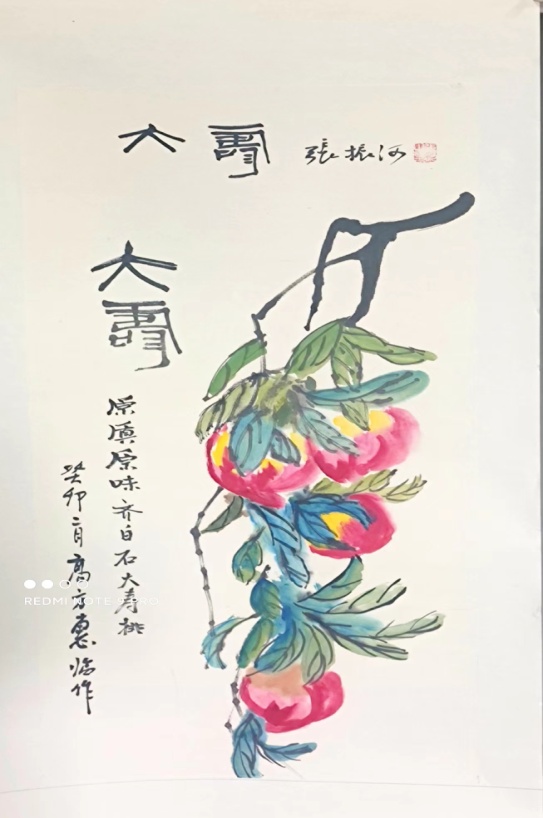 大寿 張振河
大壽
原眞原味齐白石大寿桃
癸卯二月高方惠临作
REDMI NOTE